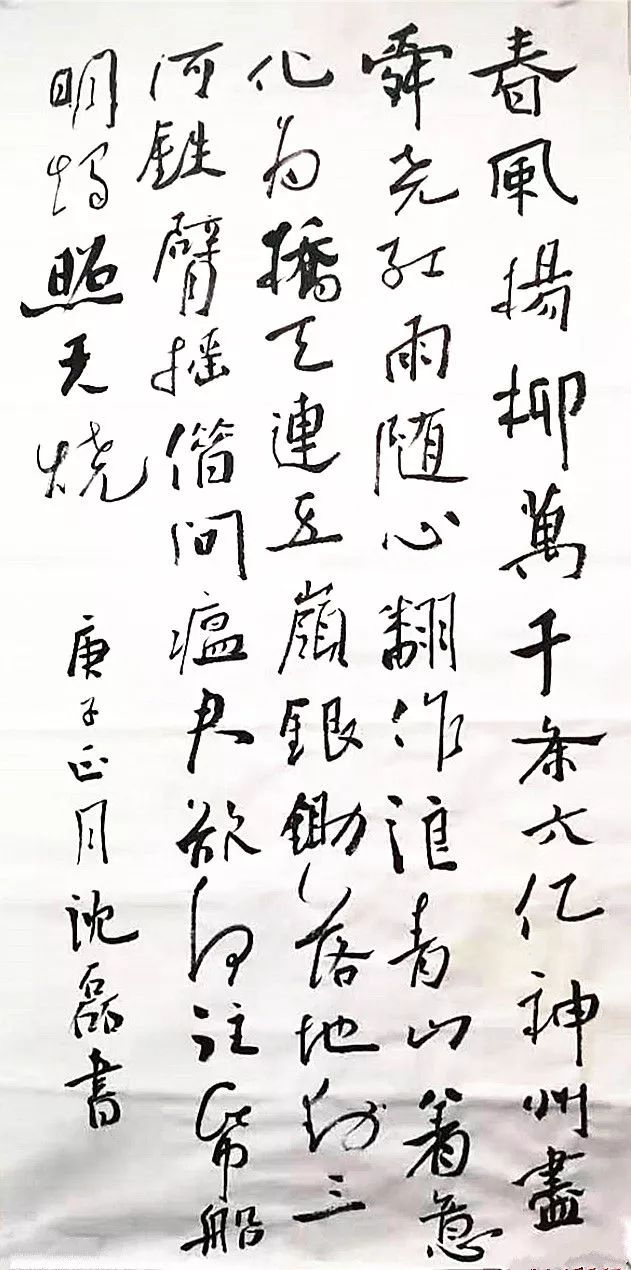 春風揚柳萬千条六亿神州盡
舜尧红雨随心翻作浪青山着意
化为橋天連五嶺銀鋤落地动三
河鉄臂摇借问瘟君欲何往紙船
明烛照天烧
庚子正月沈磊書